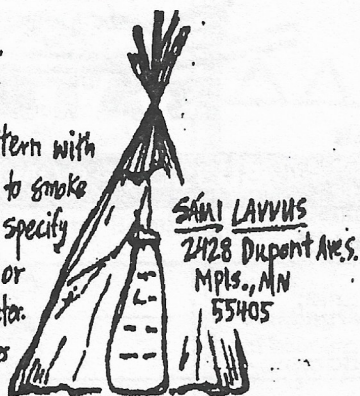 tern with
to smoke
specify
or
ter.
SÁMI LAVVUS
2428 Dupont Ave. S.
Mpls., MN
55405